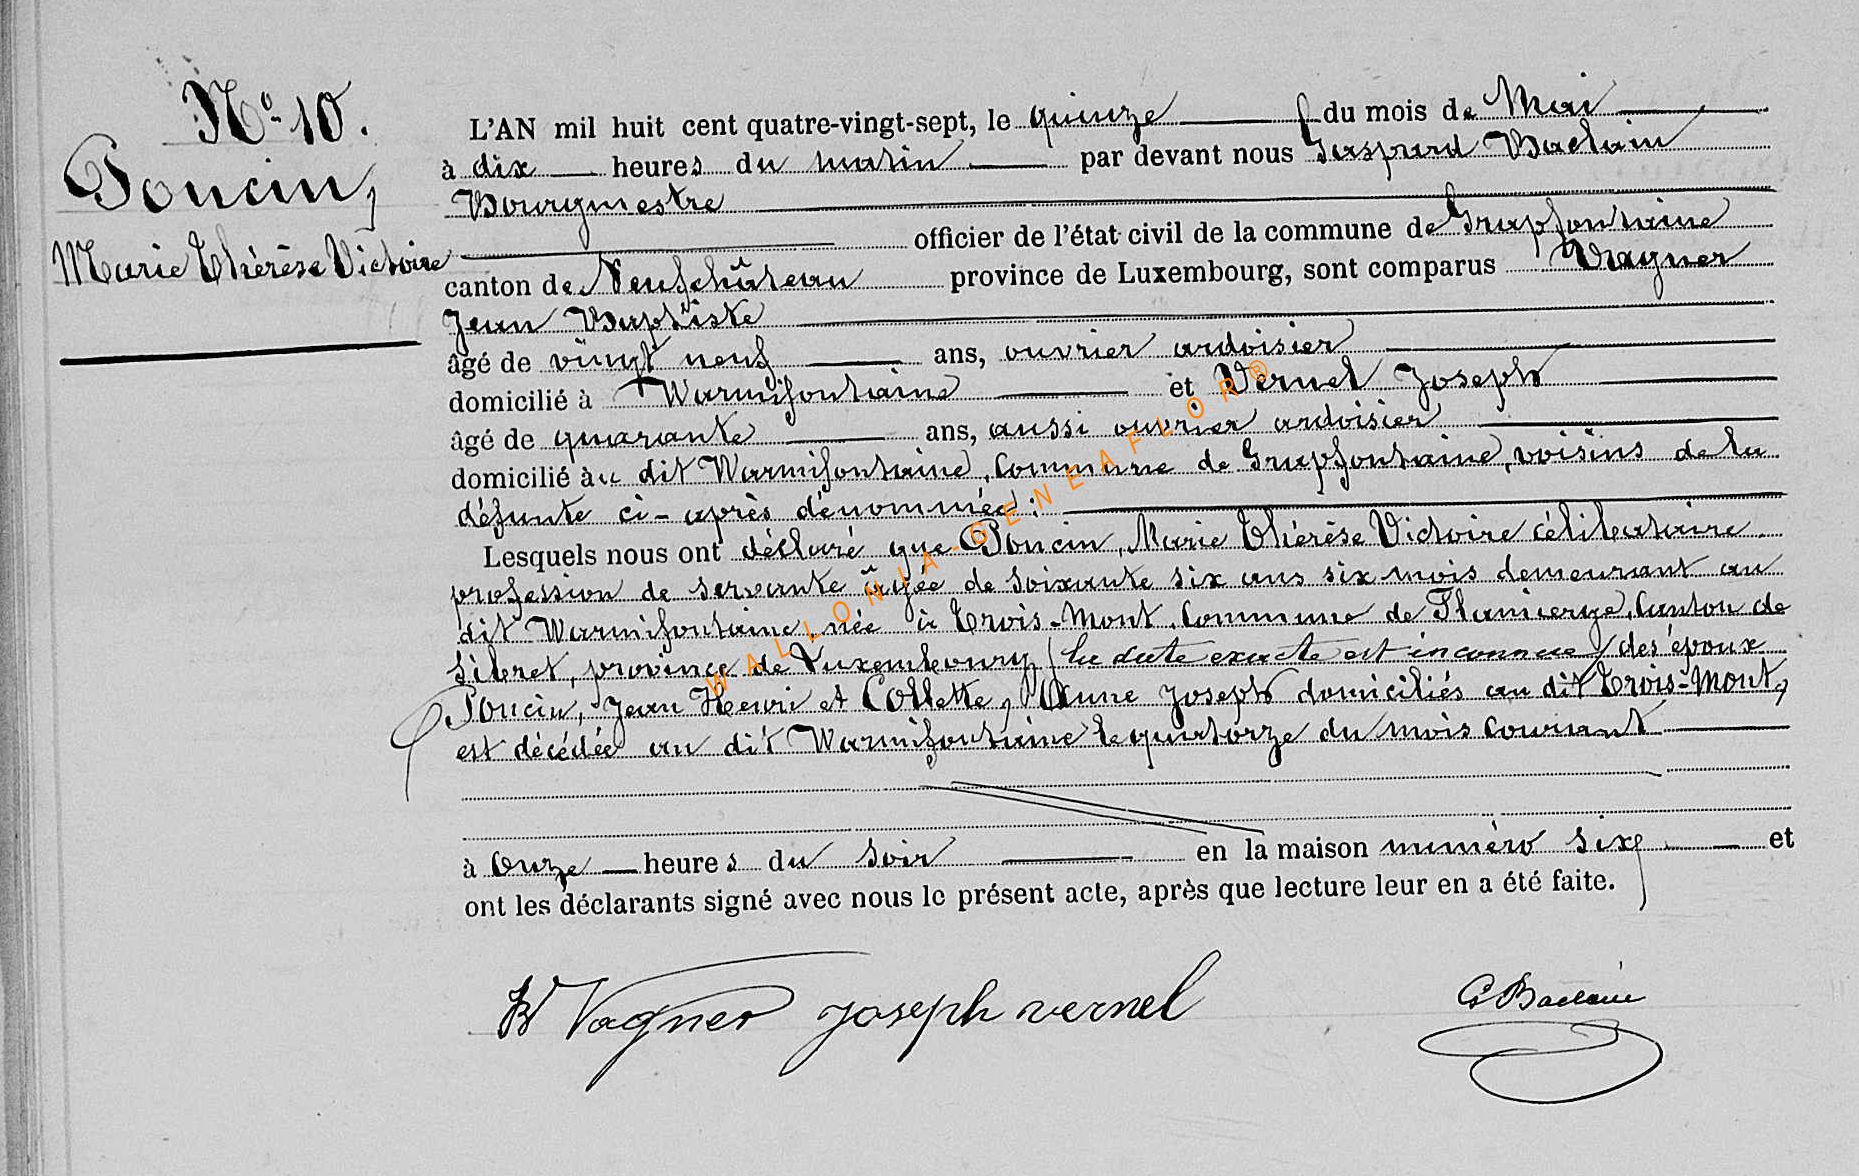 N° 10.
Poncin,
Marie Thérèse Victoire
L'AN mil huit cent quatre-vingt-sept, le quinze du mois de Mai
à dix heures du matin par devant nous Gaspard Baclain
Bourgmestre
officier de l'état civil de la commune de Grapfontaine
canton de Neufchâteau province de Luxembourg, sont comparus Wagner
Jean Baptiste
âgé de vingt neuf ans, ouvrier ardoisier
domicilié à Warmifontaine et Vernel Joseph
âgé de quarante ans, aussi ouvrier ardoisier
domicilié àu dit Warmifontaine, Commune de Grapfontaine, voisins de la
défunte ci-après dénommée:
Lesquels nous ont déclaré que Poncin, Marie Thérèse Victoire célibataire
profession de servante âgée de soixante six ans six mois demeurant au
dit Warmifontaine, née à Trois-Mont, Commune de Flamierge, Canton de
Sibret, province de Luxembourg (la date exacte est inconnue) des époux
Poncin, Jean Henri et Collette, Anne Joseph domiciliés au dit Trois-Mont,
est décédée au dit Warmifontaine le quatorze du mois courant
à onze heures du soir en la maison numéro six et
ont les déclarants signé avec nous le présent acte, après que lecture leur en a été faite.
Vagner Joseph vernel G Baclain
WALLONIA-GENEAFLOR®